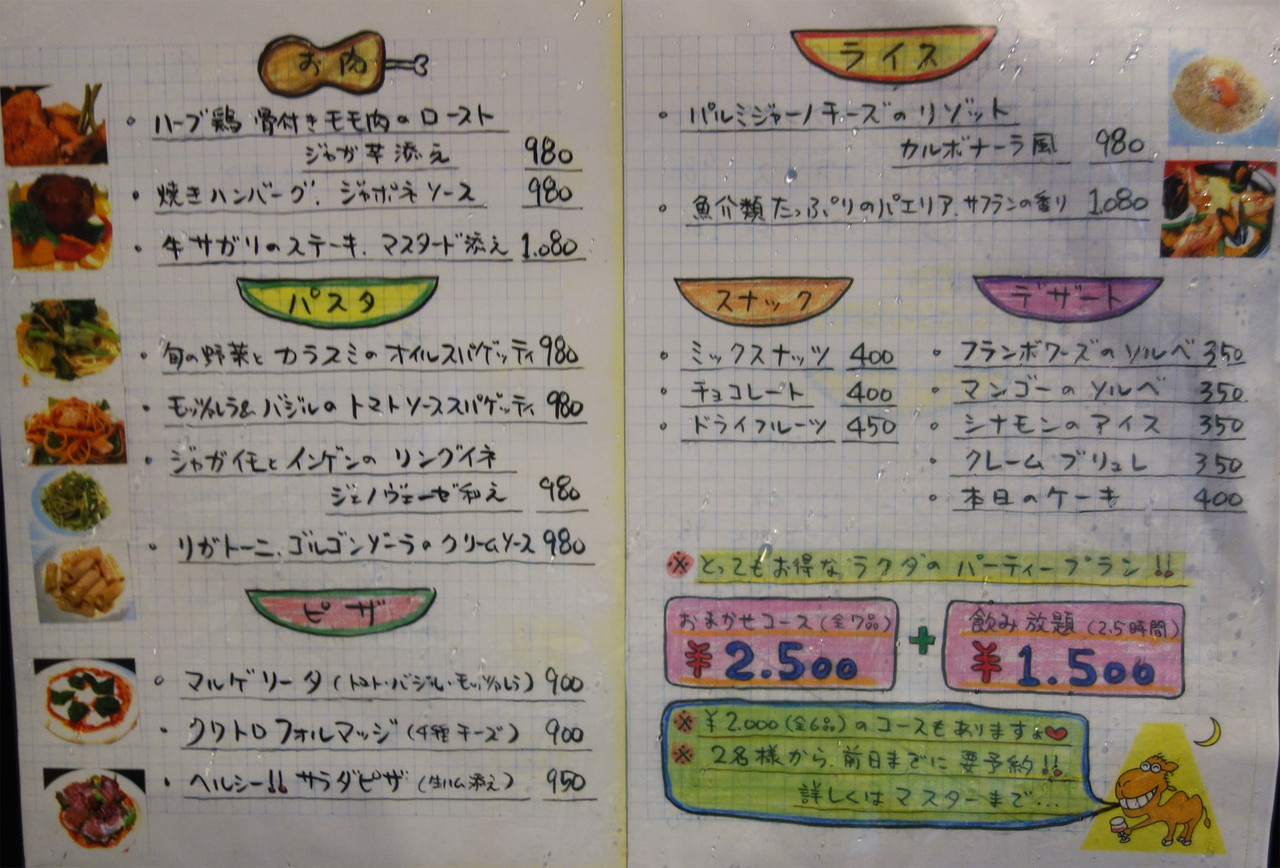 お肉
・ハーブ鶏 骨付きモモ肉のロースト
ジャガ芋添え 980
・焼きハンバーグ、ジャポネソース 980
・牛サガリのステーキ、マスタード添え 1.080
パスタ
・旬の野菜とカラスミのオイルスパゲッティ 980
・モッツァレラ&バジルのトマトソーススパゲッティ 980
・ジャガイモとインゲンのリングイネ
ジェノヴェーゼ和え 980
・リガトーニ、ゴルゴンゾーラのクリームソース 980
ピザ
・マルゲリータ(トマト・バジル・モッツァレラ) 900
・クワトロフォルマッジ(4種チーズ) 900
・ヘルシー!! サラダピザ(生ハム添え) 950
ライス
・パルミジャーノチーズのリゾット
カルボナーラ風 980
・魚介類たっぷりのパエリア、サフランの香り 1.080
スナック
・ミックスナッツ 400
・チョコレート 400
・ドライフルーツ 450
デザート
・フランボワーズのソルベ 350
・マンゴーのソルベ 350
・シナモンのアイス 350
・クレームブリュレ 350
・本日のケーキ 400
※とってもお得なラクダのパーティープラン!!
おまかせコース(全7品)
¥2.500
+
飲み放題(2.5時間)
¥1.500
※¥2.000(全6品)のコースもあります
※2名様から、前日までに要予約!!
詳しくはマスターまで...